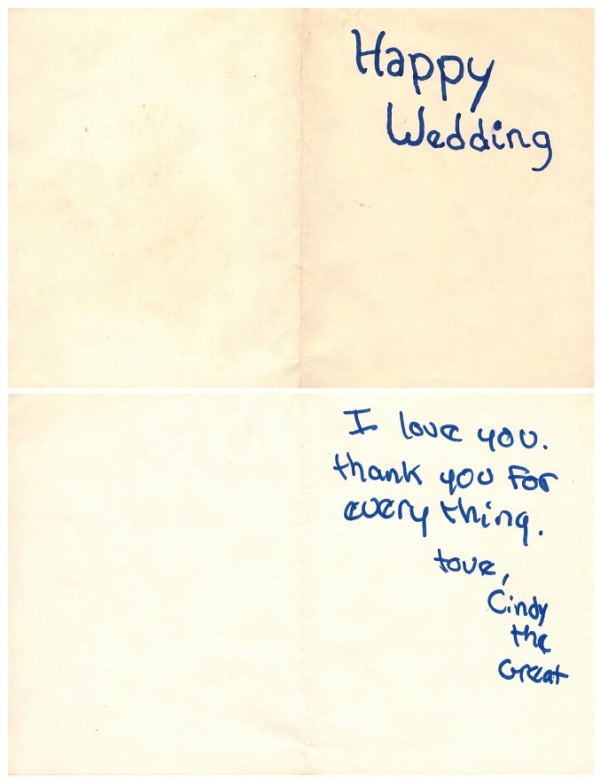 Happy
Wedding
I love you.
thank you for
every thing.
tove,
Cindy
the
Great